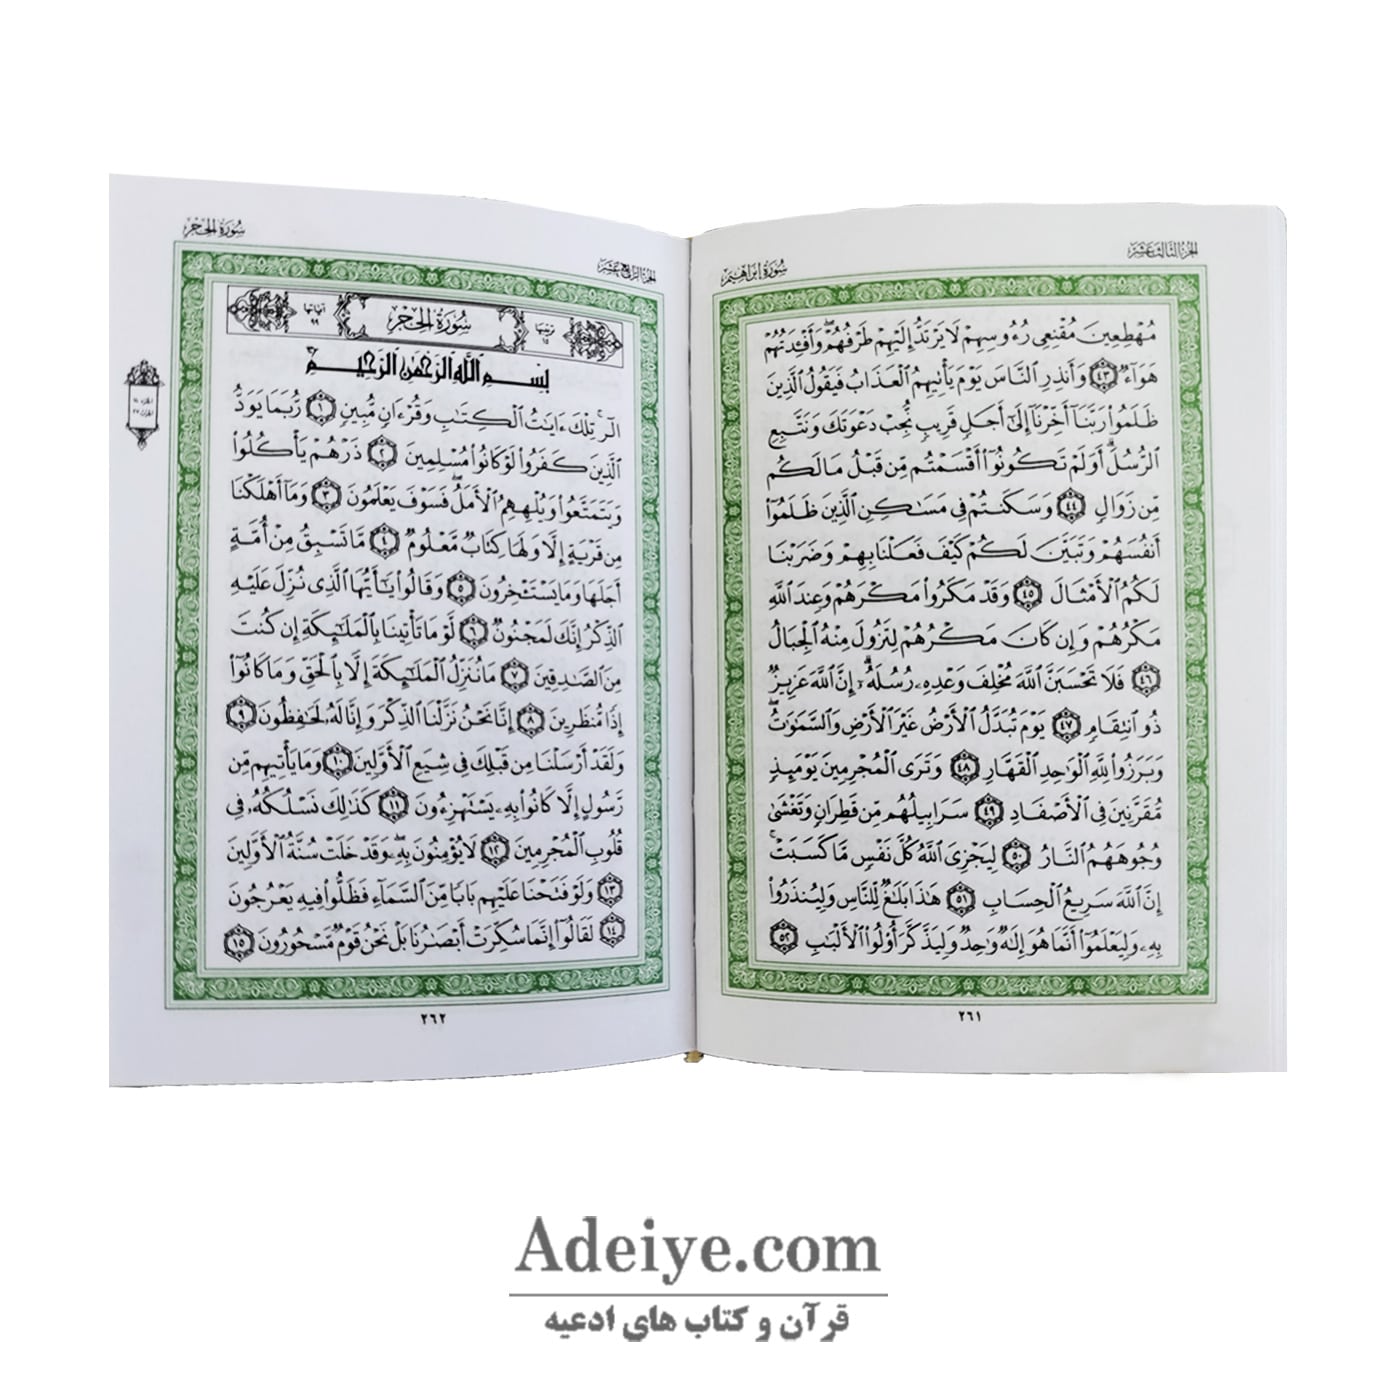 الجزء الثالث عشر
سورة إبراهيم
مُهْطِعِينَ مُقْنِعِي رُءُوسِهِمْ لَا يَرْتَدُّ إِلَيْهِمْ طَرْفُهُمْ ۖ وَأَفْـِٔدَتُهُمْ
هَوَآءٌ ﴿٤٣﴾ وَأَنذِرِ ٱلنَّاسَ يَوْمَ يَأْتِيهِمُ ٱلْعَذَابُ فَيَقُولُ ٱلَّذِينَ
ظَلَمُوا۟ رَبَّنَآ أَخِّرْنَآ إِلَىٰٓ أَجَلٍ قَرِيبٍ نُّجِبْ دَعْوَتَكَ وَنَتَّبِعِ
ٱلرُّسُلَ ۗ أَوَلَمْ تَكُونُوٓا۟ أَقْسَمْتُم مِّن قَبْلُ مَا لَكُم
مِّن زَوَالٍ ﴿٤٤﴾ وَسَكَنتُمْ فِى مَسَـٰكِنِ ٱلَّذِينَ ظَلَمُوٓا۟
أَنفُسَهُمْ وَتَبَيَّنَ لَكُمْ كَيْفَ فَعَلْنَا بِهِمْ وَضَرَبْنَا
لَكُمُ ٱلْأَمْثَالَ ﴿٤٥﴾ وَقَدْ مَكَرُوا۟ مَكْرَهُمْ وَعِندَ ٱللَّهِ
مَكْرُهُمْ وَإِن كَانَ مَكْرُهُمْ لِتَزُولَ مِنْهُ ٱلْجِبَالُ
﴿٤٦﴾ فَلَا تَحْسَبَنَّ ٱللَّهَ مُخْلِفَ وَعْدِهِۦ رُسُلَهُۥٓ ۗ إِنَّ ٱللَّهَ عَزِيزٌ
ذُو ٱنتِقَامٍ ﴿٤٧﴾ يَوْمَ تُبَدَّلُ ٱلْأَرْضُ غَيْرَ ٱلْأَرْضِ وَٱلسَّمَـٰوَٰتُ ۖ
وَبَرَزُوا۟ لِلَّهِ ٱلْوَٰحِدِ ٱلْقَهَّارِ ﴿٤٨﴾ وَتَرَى ٱلْمُجْرِمِينَ يَوْمَئِذٍ
مُّقَرَّنِينَ فِى ٱلْأَصْفَادِ ﴿٤٩﴾ سَرَابِيلُهُم مِّن قَطِرَانٍ وَتَغْشَىٰ
وُجُوهَهُمُ ٱلنَّارُ ﴿٥٠﴾ لِيَجْزِىَ ٱللَّهُ كُلَّ نَفْسٍ مَّا كَسَبَتْ ۚ
إِنَّ ٱللَّهَ سَرِيعُ ٱلْحِسَابِ ﴿٥١﴾ هَـٰذَا بَلَـٰغٌ لِّلنَّاسِ وَلِيُنذَرُوا۟
بِهِۦ وَلِيَعْلَمُوٓا۟ أَنَّمَا هُوَ إِلَـٰهٌ وَٰحِدٌ وَلِيَذَّكَّرَ أُو۟لُوا۟ ٱلْأَلْبَـٰبِ ﴿٥٢﴾
٢٦١
الجزء الرابع عشر
سورة الحجر
ترتيبها ١٥
سُورَةُ الحِجْرِ
آياتها ٩٩
بِسْمِ ٱللَّهِ ٱلرَّحْمَـٰنِ ٱلرَّحِيمِ
الٓر ۚ تِلْكَ ءَايَـٰتُ ٱلْكِتَـٰبِ وَقُرْءَانٍ مُّبِينٍ ﴿١﴾ رُّبَمَا يَوَدُّ
ٱلَّذِينَ كَفَرُوا۟ لَوْ كَانُوا۟ مُسْلِمِينَ ﴿٢﴾ ذَرْهُمْ يَأْكُلُوا۟
وَيَتَمَتَّعُوا۟ وَيُلْهِهِمُ ٱلْأَمَلُ ۖ فَسَوْفَ يَعْلَمُونَ ﴿٣﴾ وَمَآ أَهْلَكْنَا
مِن قَرْيَةٍ إِلَّا وَلَهَا كِتَابٌ مَّعْلُومٌ ﴿٤﴾ مَّا تَسْبِقُ مِنْ أُمَّةٍ
أَجَلَهَا وَمَا يَسْتَـْٔخِرُونَ ﴿٥﴾ وَقَالُوا۟ يَـٰٓأَيُّهَا ٱلَّذِى نُزِّلَ عَلَيْهِ
ٱلذِّكْرُ إِنَّكَ لَمَجْنُونٌ ﴿٦﴾ لَّوْ مَا تَأْتِينَا بِٱلْمَلَـٰٓئِكَةِ إِن كُنتَ
مِنَ ٱلصَّـٰدِقِينَ ﴿٧﴾ مَا نُنَزِّلُ ٱلْمَلَـٰٓئِكَةَ إِلَّا بِٱلْحَقِّ وَمَا كَانُوٓا۟
إِذًا مُّنظَرِينَ ﴿٨﴾ إِنَّا نَحْنُ نَزَّلْنَا ٱلذِّكْرَ وَإِنَّا لَهُۥ لَحَـٰفِظُونَ ﴿٩﴾
وَلَقَدْ أَرْسَلْنَا مِن قَبْلِكَ فِى شِيَعِ ٱلْأَوَّلِينَ ﴿١٠﴾ وَمَا يَأْتِيهِم مِّن
رَّسُولٍ إِلَّا كَانُوا۟ بِهِۦ يَسْتَهْزِءُونَ ﴿١١﴾ كَذَٰلِكَ نَسْلُكُهُۥ فِى
قُلُوبِ ٱلْمُجْرِمِينَ ﴿١٢﴾ لَا يُؤْمِنُونَ بِهِۦ ۖ وَقَدْ خَلَتْ سُنَّةُ ٱلْأَوَّلِينَ
﴿١٣﴾ وَلَوْ فَتَحْنَا عَلَيْهِم بَابًا مِّنَ ٱلسَّمَآءِ فَظَلُّوا۟ فِيهِ يَعْرُجُونَ
﴿١٤﴾ لَقَالُوٓا۟ إِنَّمَا سُكِّرَتْ أَبْصَـٰرُنَا بَلْ نَحْنُ قَوْمٌ مَّسْحُورُونَ ﴿١٥﴾
٢٦٢
Adeiye.com
قرآن و کتاب های ادعیه